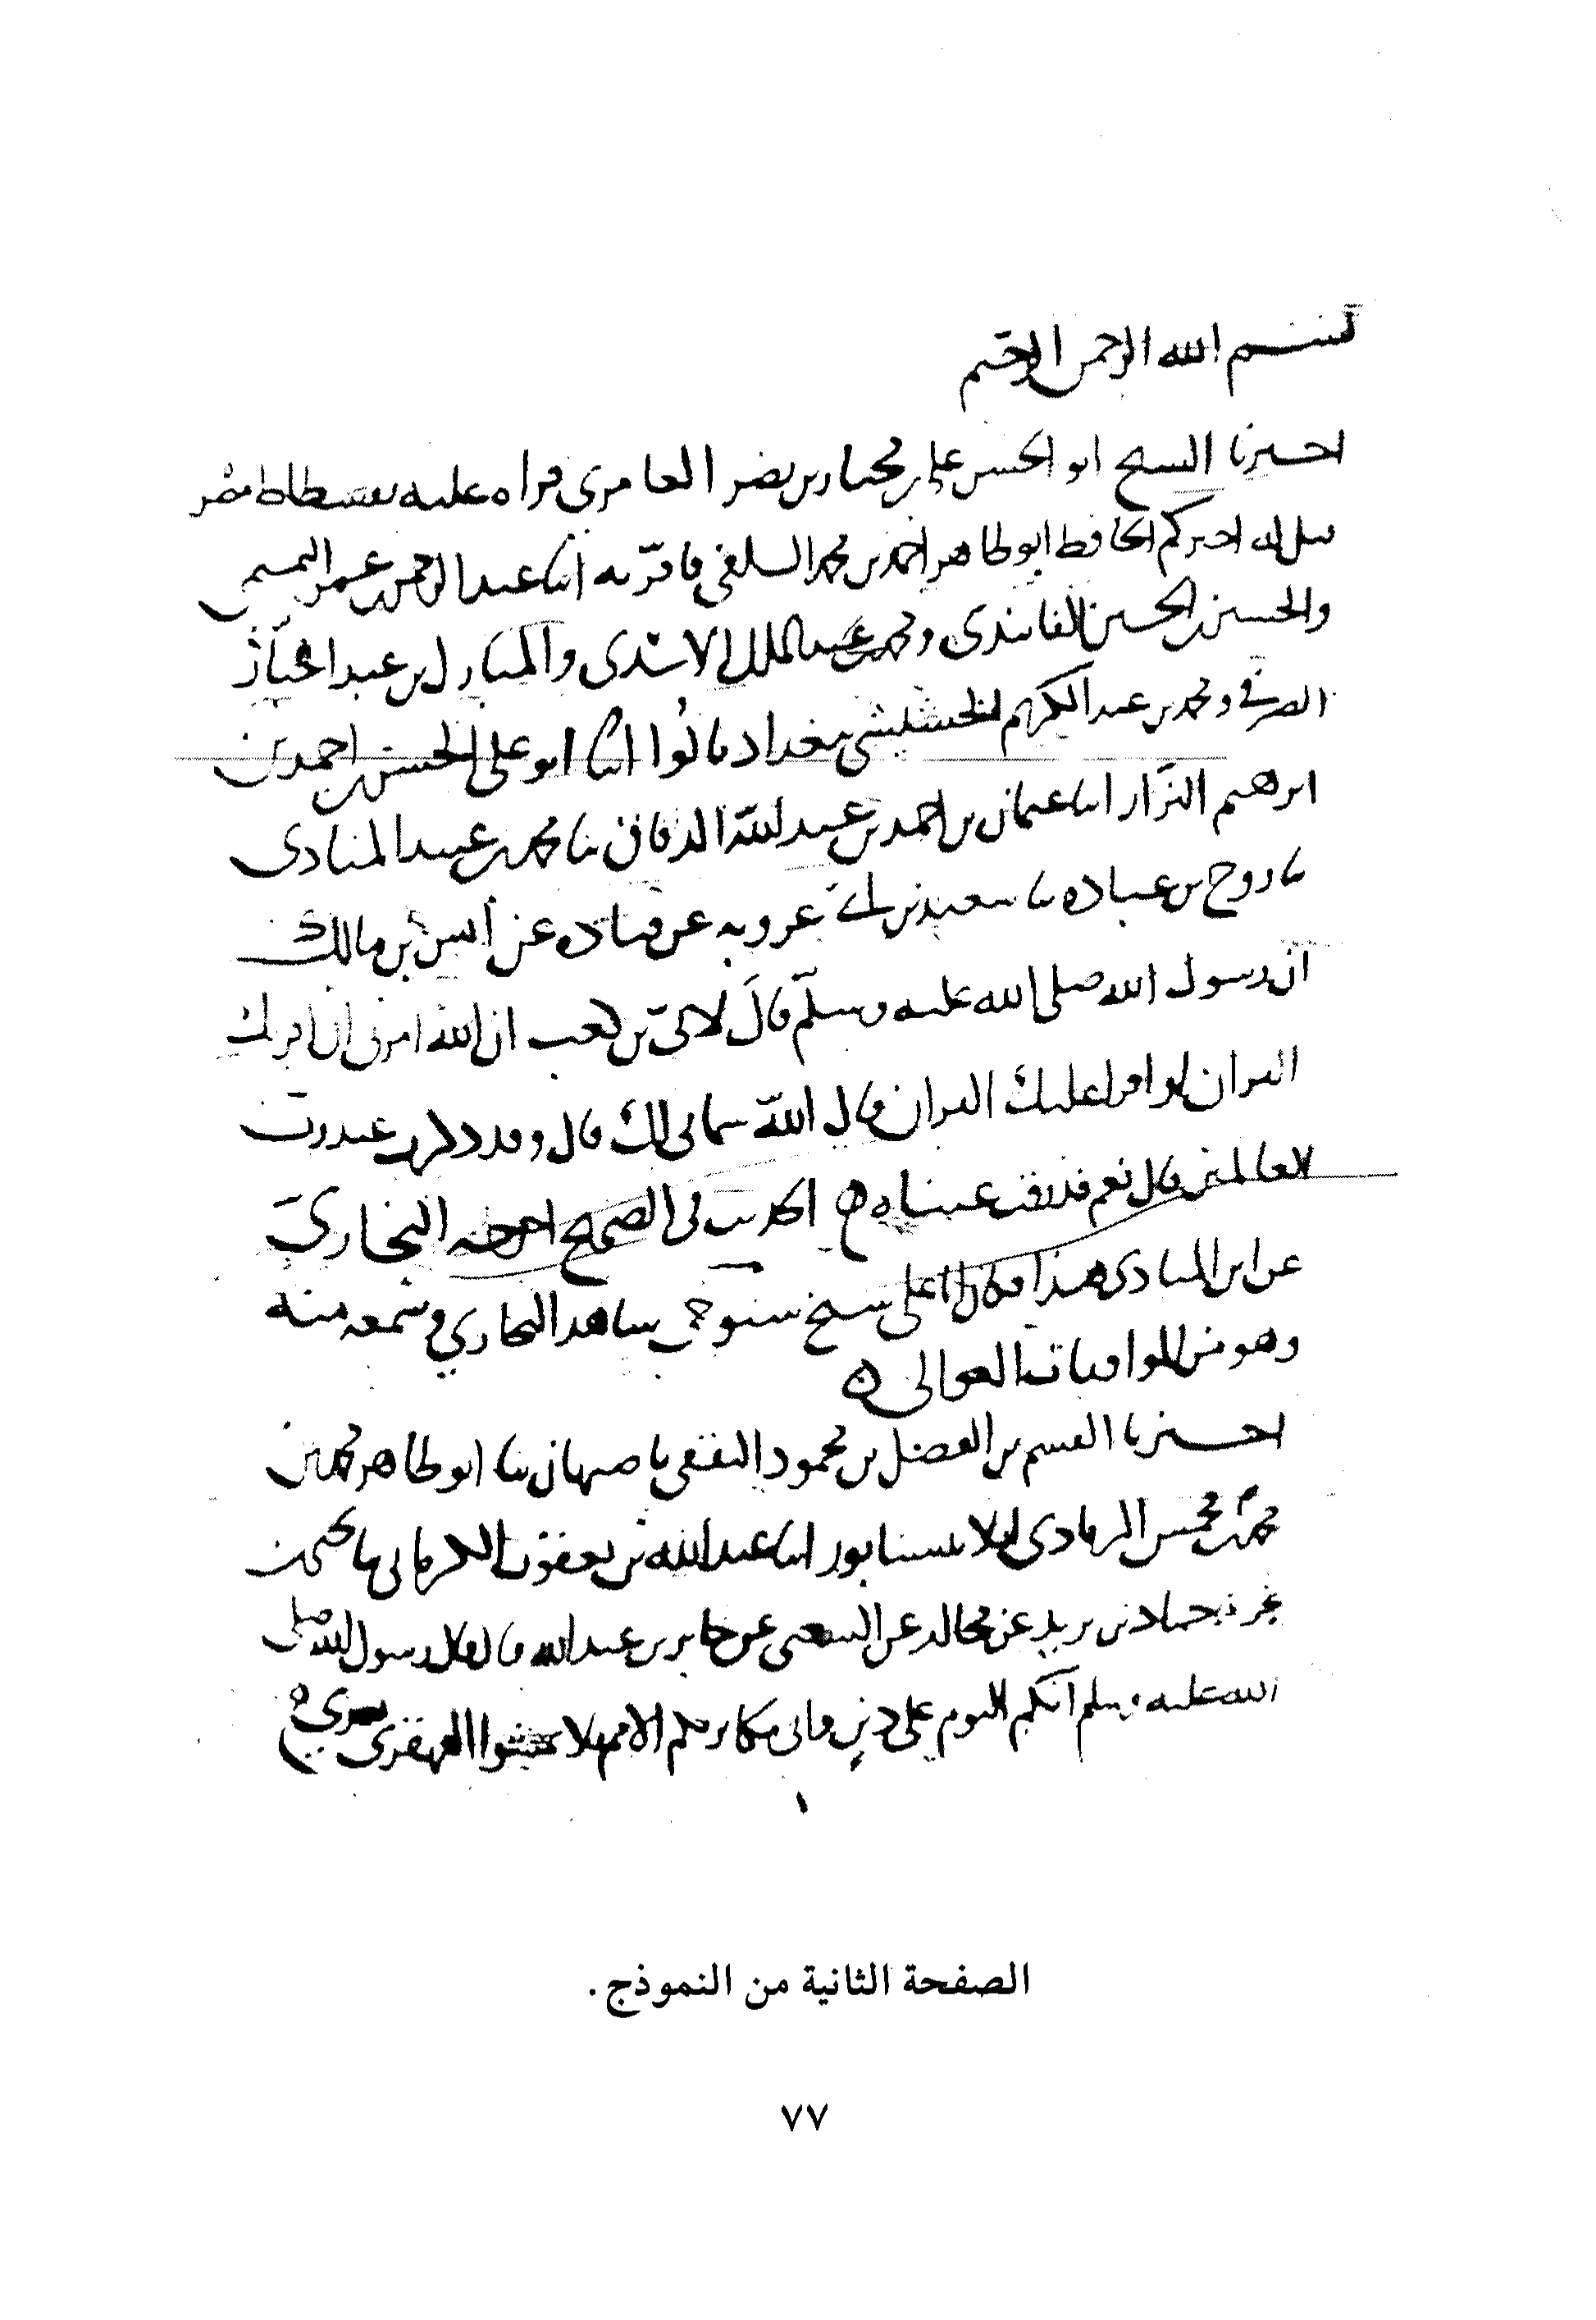 بسم الله الرحمن الرحيم
اخبرنا الشيخ ابو الحسن علي بن مختار بن نصر العامري قراه عليه بفسطاط مصر
قيل له اخبركم الحافظ ابو طاهر احمد بن محمد السلفي فاقر به انبا عبد الرحمن بن عمر
والحسين بن الحسين الفانيدي ومحمد بن عبد الملك الاسدي والمبارك بن عبد الجبار
الصيرفي ومحمد بن عبد الكريم الخشيشي ببغداد قالوا انبا ابو علي الحسن بن احمد بن
ابرهيم البزار انبا عثمان بن احمد بن عبد الله الدقاق ثنا محمد بن عبيد المنادي
ثنا روح بن عباده ثنا سعيد بن ابي عروبه عن قتاده عن انس بن مالك
ان رسول الله صلى الله عليه وسلم قال لابي بن كعب ان الله امرني ان اقرئك
القران او اقرا عليك القران قال الله سماني لك قال وقد ذكرت عند رب
العالمين قال نعم فذرفت عيناه الحديث في الصحيح اخرجه البخاري
عن ابن المنادي هذا على شيخ شيوخي شاهد البخاري وسمعه منه
وهو من الموافقات العوالي
اخبرنا القسم بن الفضل بن محمود الثقفي باصبهان ثنا ابو طاهر محمد بن
محمد بن محمش الزيادي املا بنيسابور انبا عبد الله بن يعقوب الكرماني ثنا يحيى بن
بحر ثنا حماد بن زيد عن مجالد عن الشعبي عن جابر بن عبد الله قال قال رسول الله صلى
الله عليه وسلم انكم اليوم على دين واني مكاثر بكم الامم فلا تمشوا القهقرى بعدي
١
الصفحة الثانية من النموذج.
٧٧